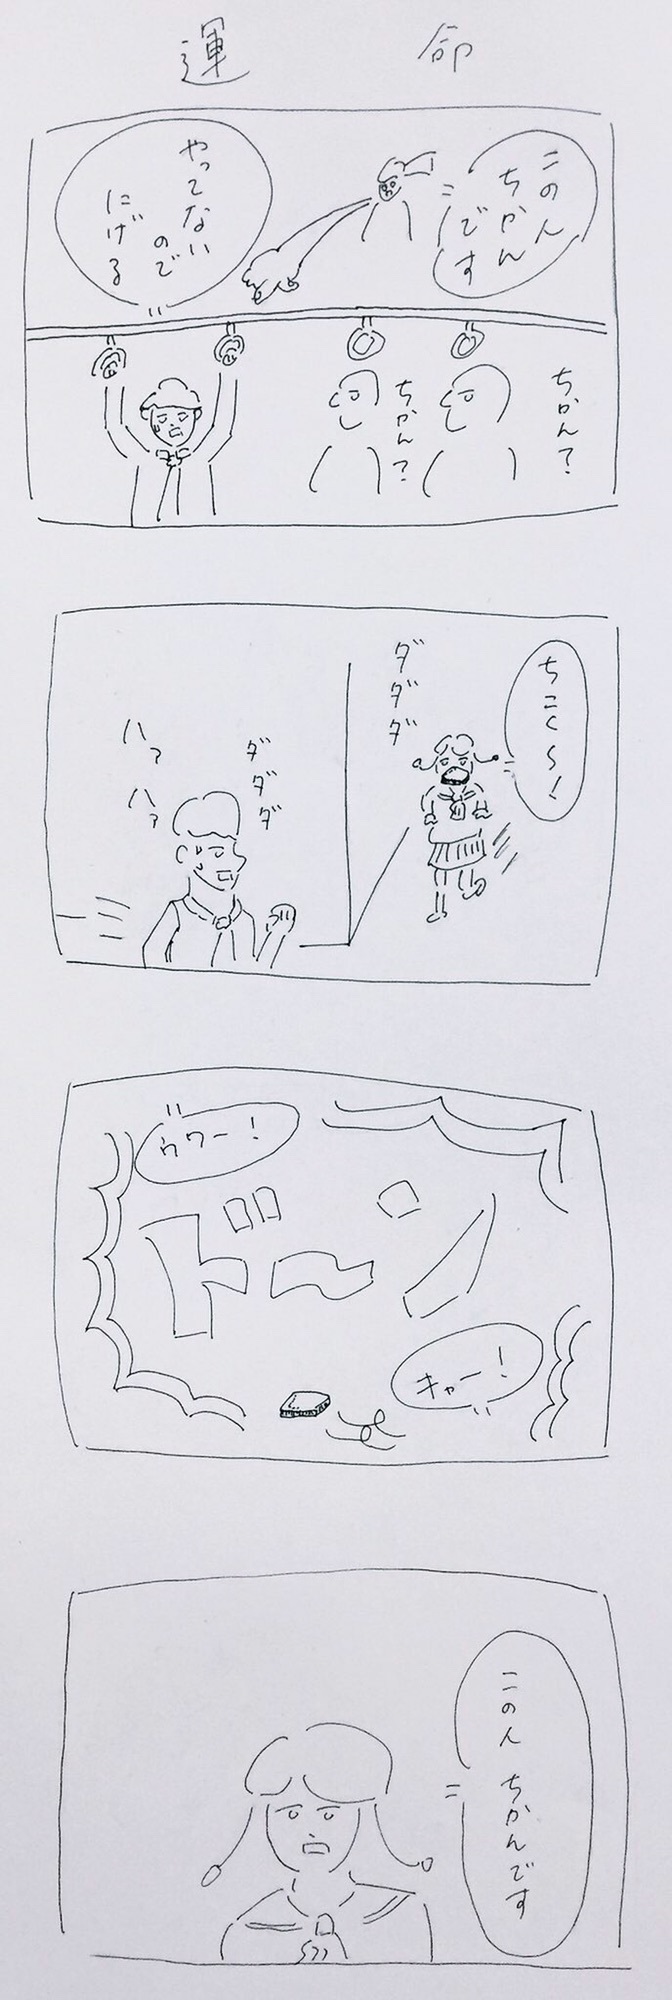 運命
この人
ちかん
です
やってない
ので
にげる
ちかん?
ちかん?
ちこく〜!
ダダダ
ダダダ
ハァ
ハァ
ウワー!
ドーン
キャー!
この人 ちかんです